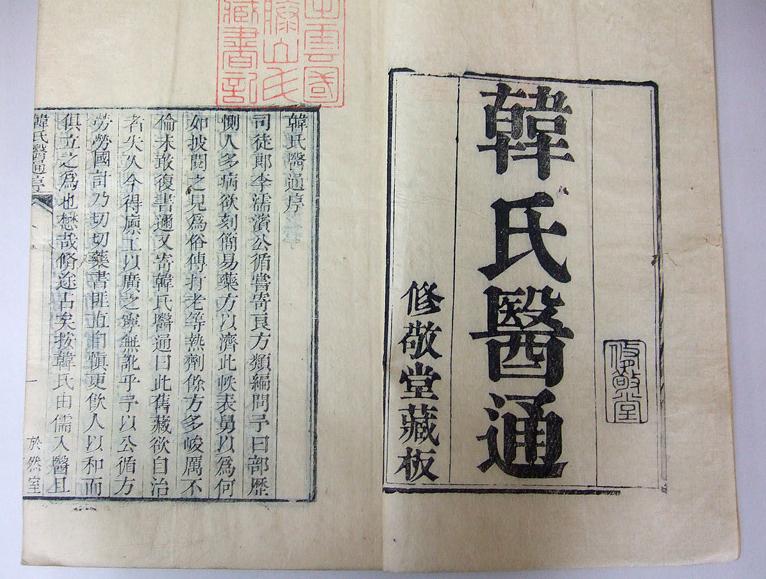 韓氏醫通
修敬堂藏板
修敬堂
出雲國
山氏
藏書記
韓氏醫通序
司徒郎李濡濱公循嘗寄良方類編問予曰部歷
惻人多病欲刻簡易藥方以濟此帙表舅以為何
如披閱之見為俗傳有老等熱劑餘方多峻厲不
倫未敢復書邇又寄韓氏醫通曰此舊藏欲自治
者失久今得工以廣之寧無訛乎予以公循方
勞勞國計乃切切藥書匪直自慎更飲人以和而
俱立之為也懋哉脩途占矣按韓氏由儒入醫且
韓氏醫通序
於然室